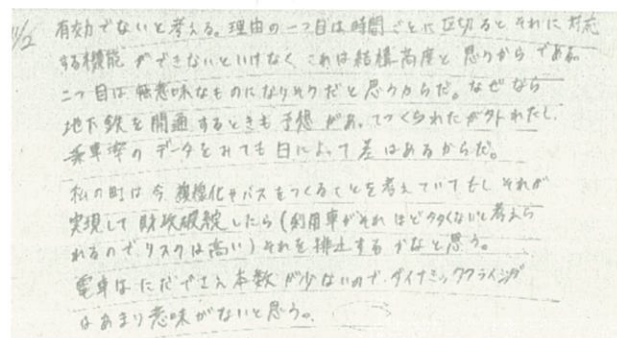 11/2 有効でないと考える。理由の一つ目は時間ごとに区切るとそれに対応
する機能ができないといけなく、これは結構高度と思うからである。
二つ目は無意味なものになりそうだと思うからだ。なぜなら
地下鉄を開通するときも予想があってつくられたが外れたし、
乗車率のデータをみても日によって差はあるからだ。
私の町は今 複線化やバスをつくることを考えていてもし それが
実現して 財政破綻したら(利用車がそれほど多くないと考えら
れるのでリスクは高い)それを するかなと思う。
電車はただでさえ本数が少ないので、ダイナミックプライシング
はあまり意味がないと思う。